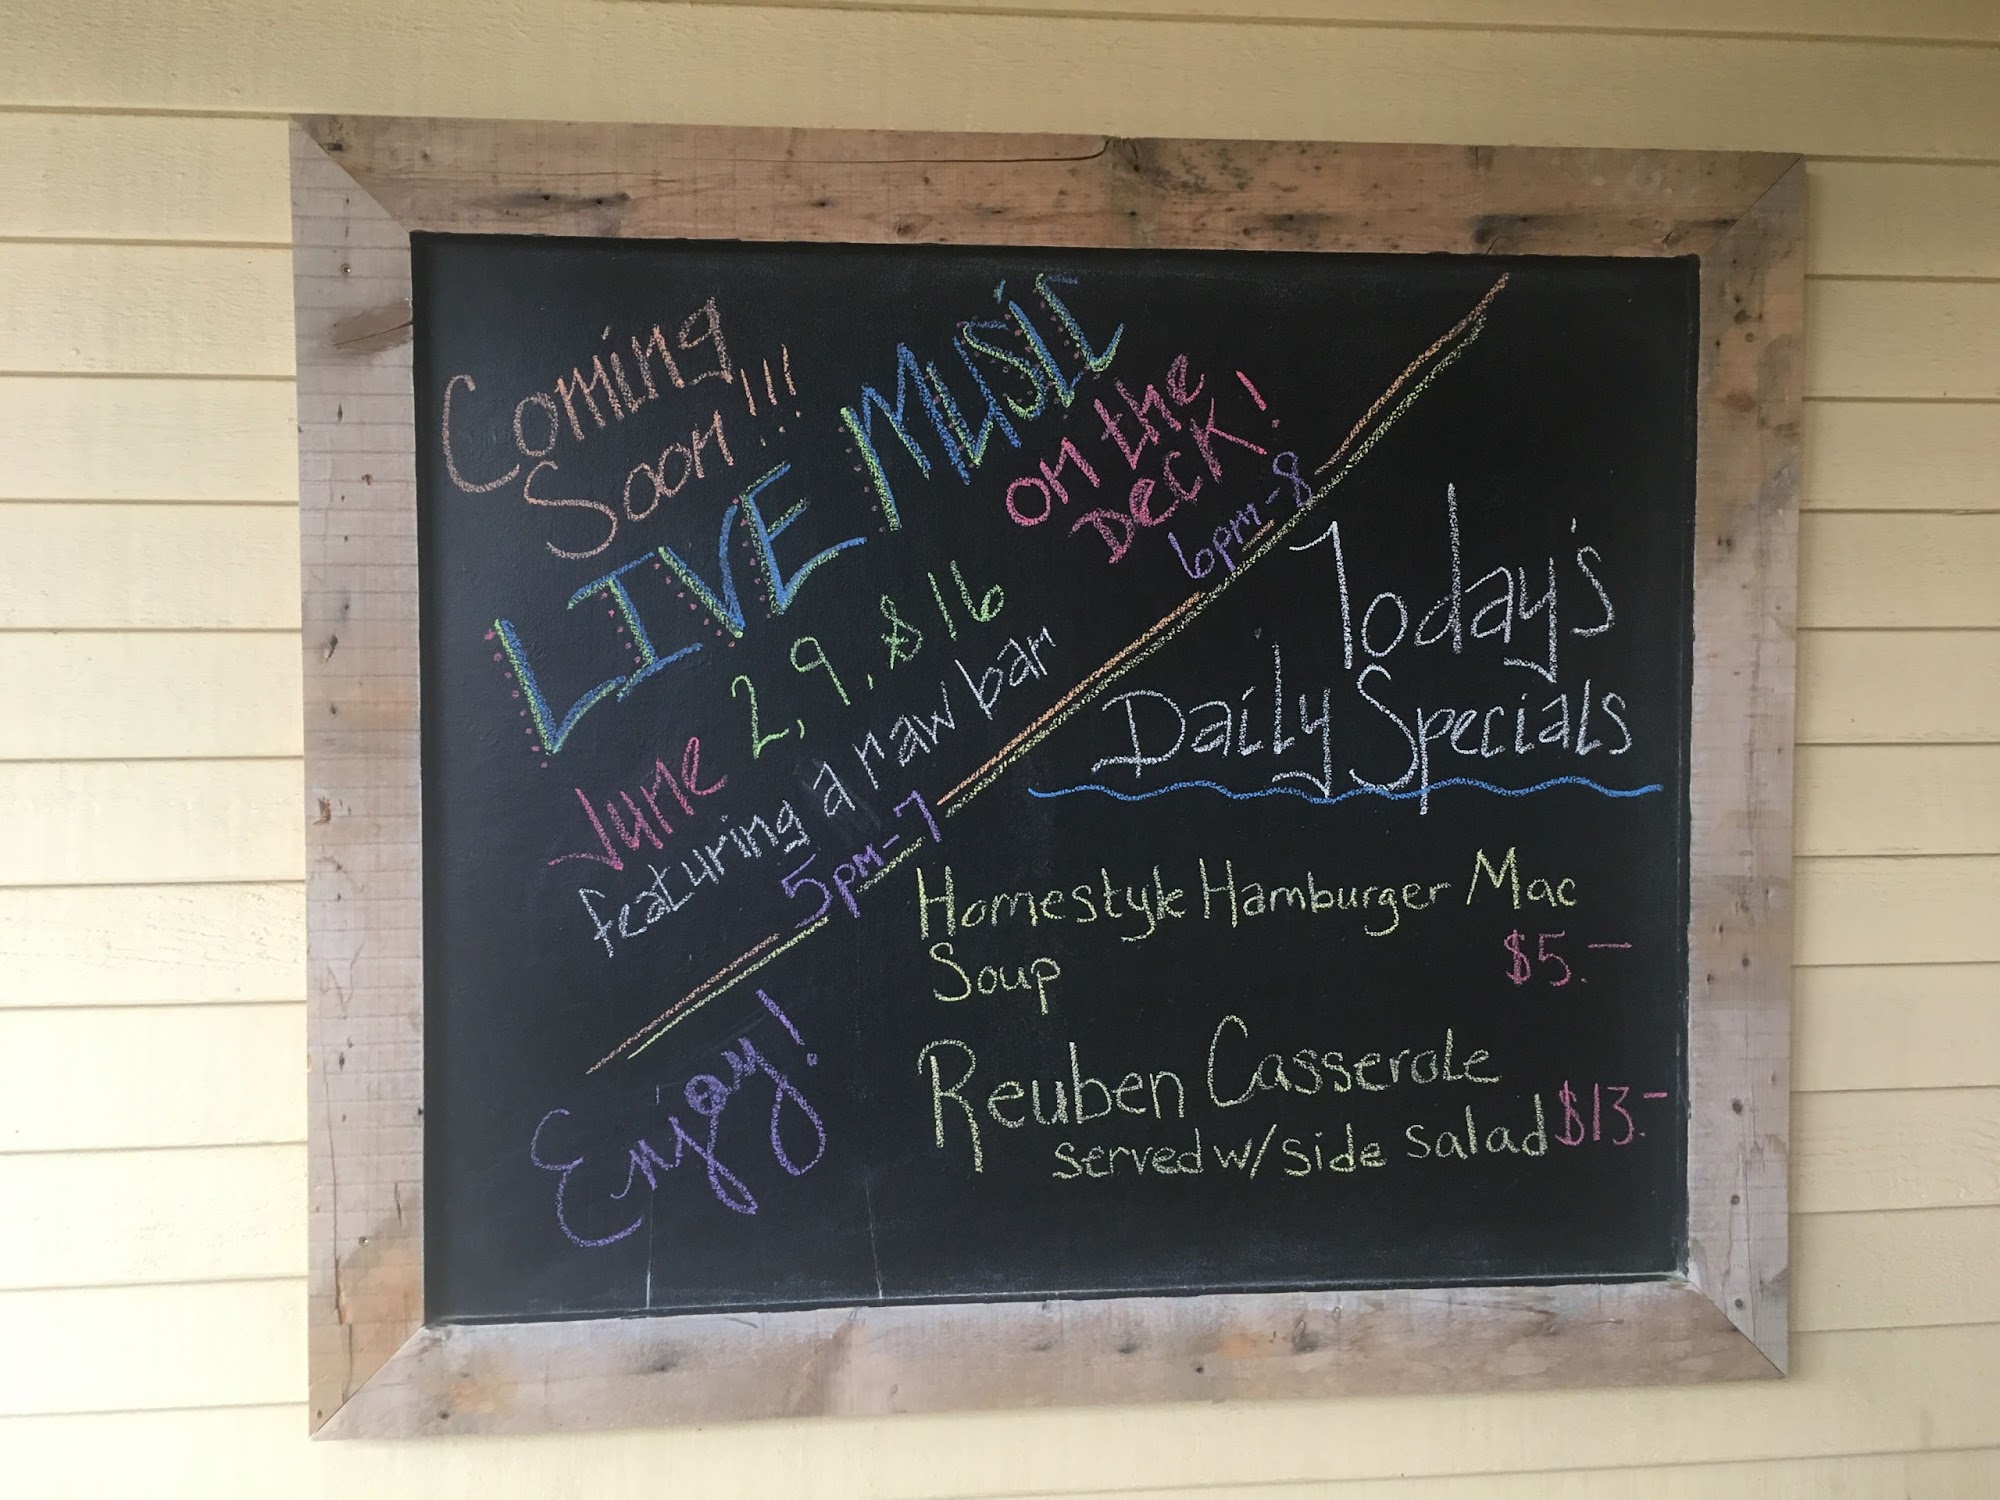 Coming
Soon!!!
LIVE MUSIC
on the
DECK!
6pm-8
June 2, 9, & 16
featuring a raw bar
5pm-7
Enjoy!
Today's
Daily Specials
Homestyle Hamburger Mac
Soup $5.-
Reuben Casserole
served w/ side salad $13.-